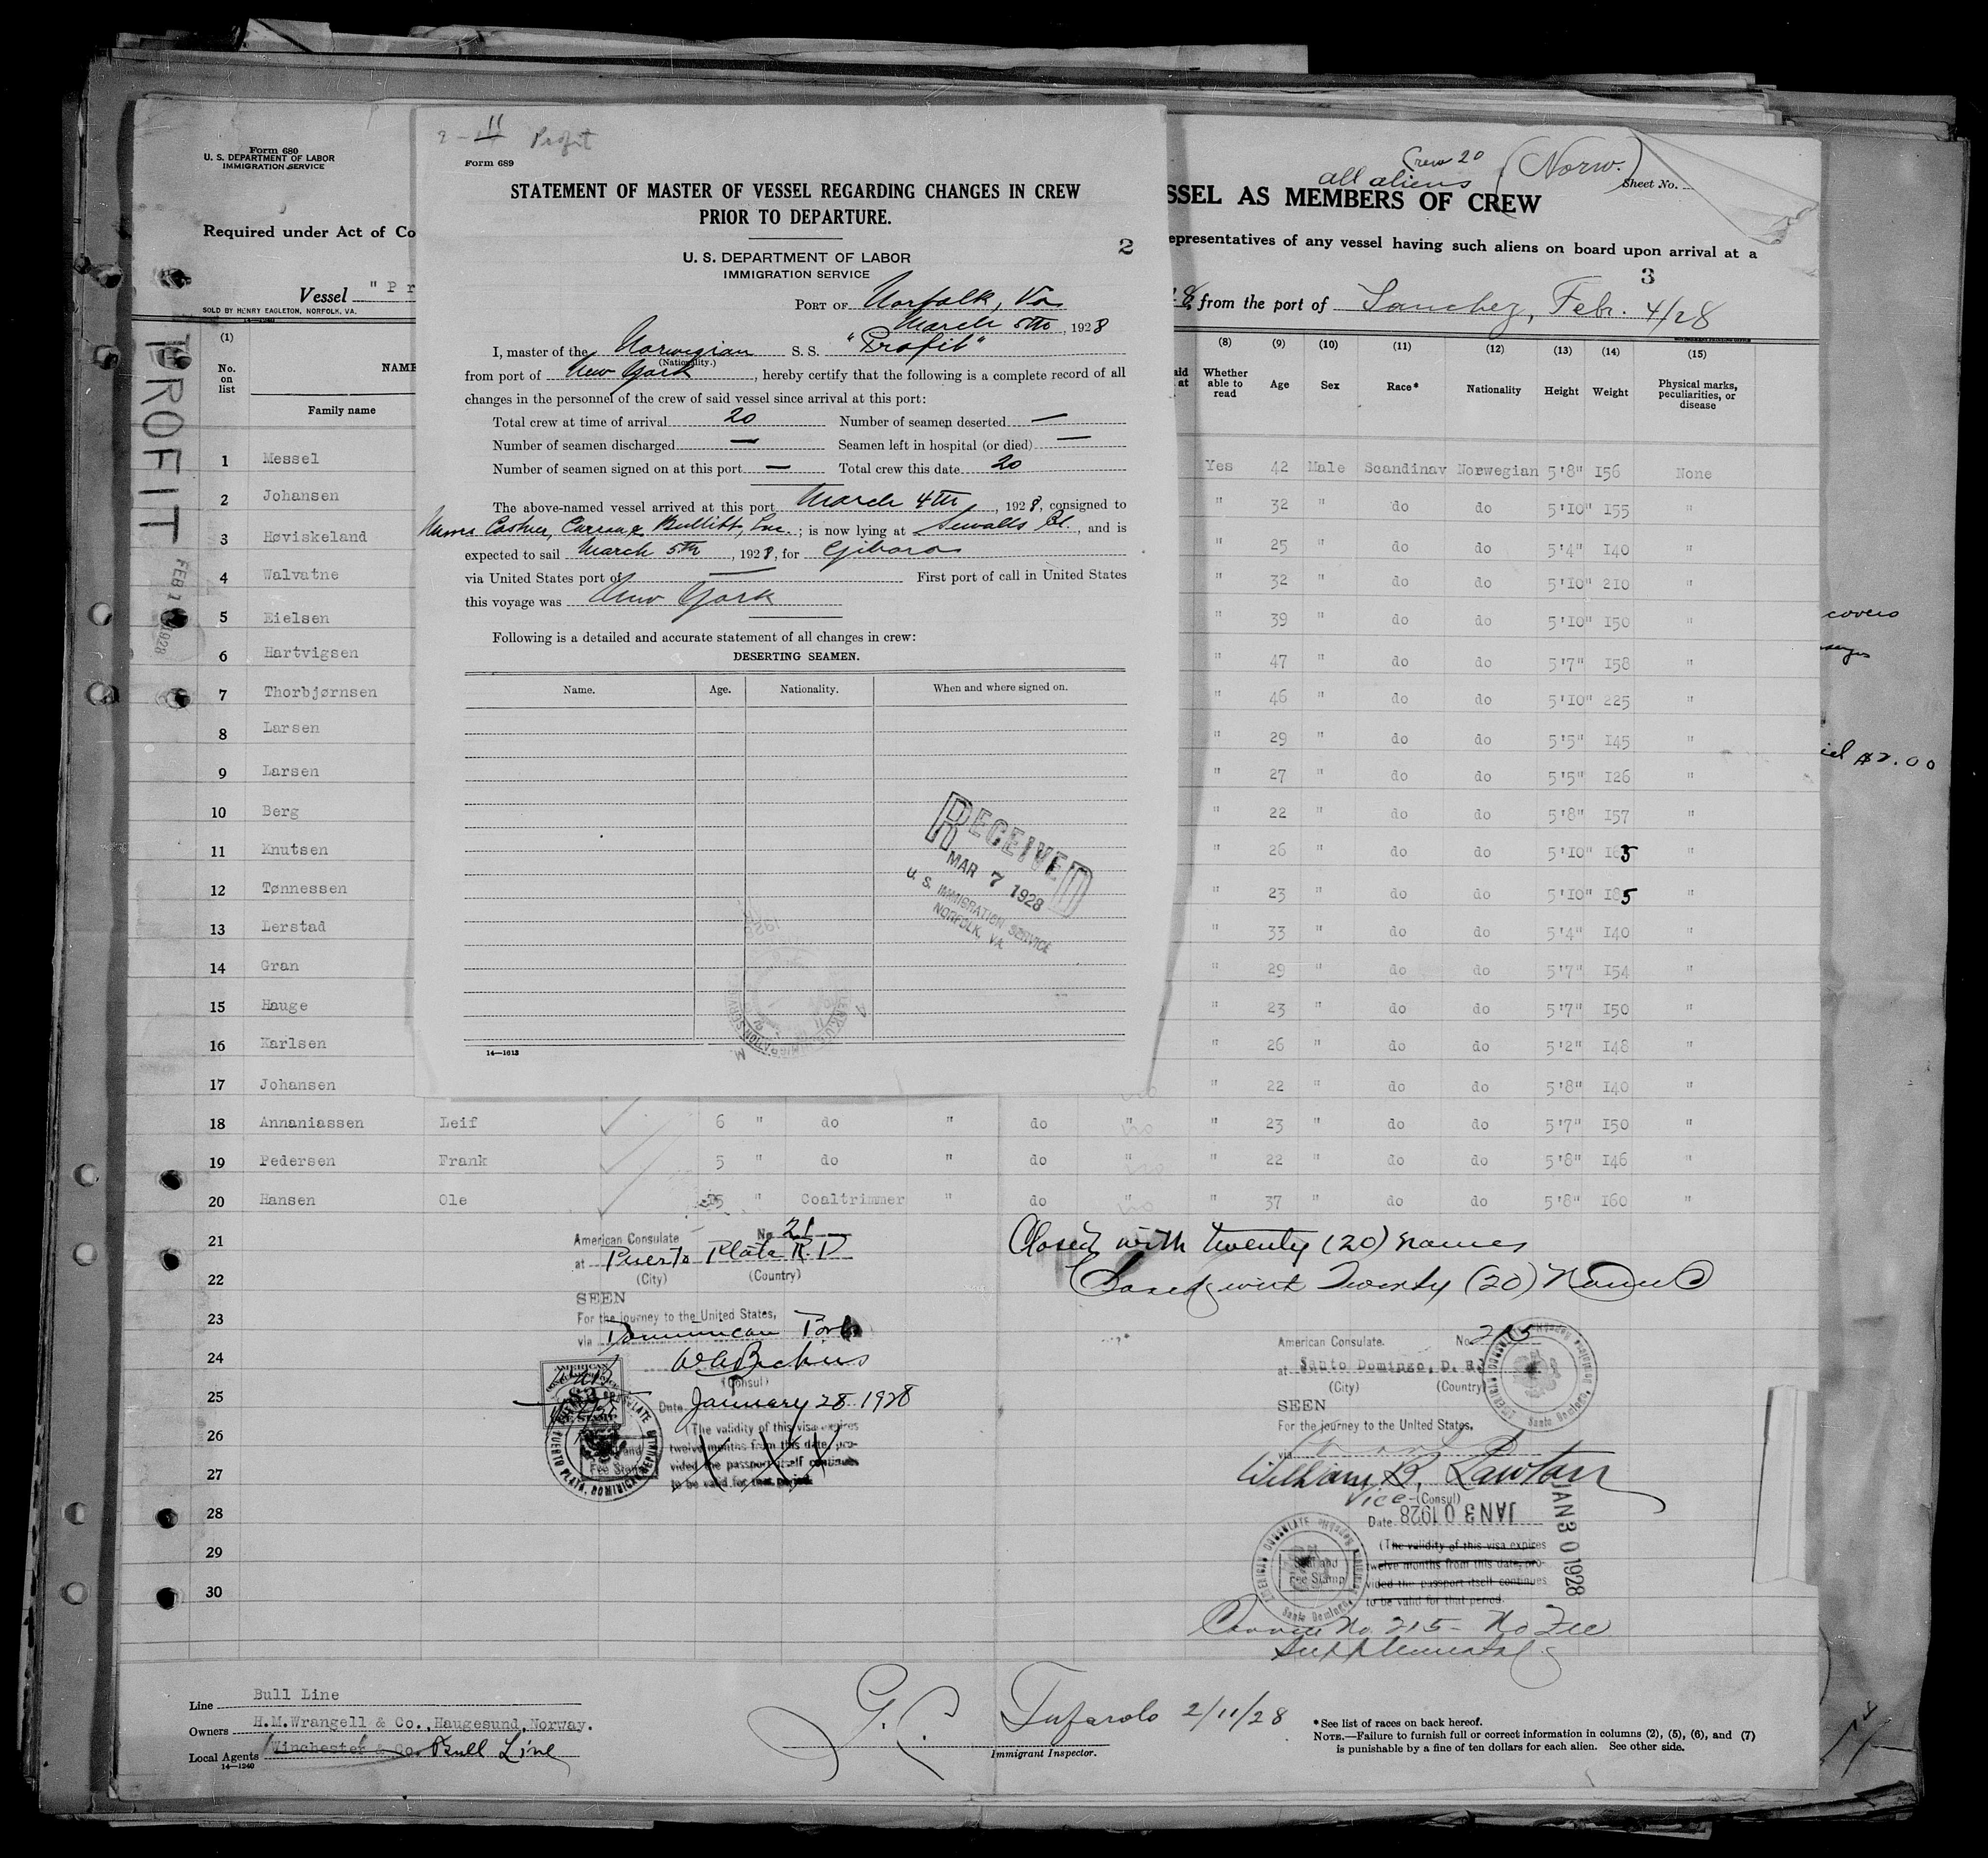 2 - 11 Profit
Form 689
STATEMENT OF MASTER OF VESSEL REGARDING CHANGES IN CREW
PRIOR TO DEPARTURE.
2
U. S. DEPARTMENT OF LABOR
IMMIGRATION SERVICE
PORT OF Norfolk, Va
March 5th, 1928
I, master of the Norwegian S. S. "Profit"
(Nationality.)
from port of New York, hereby certify that the following is a complete record of all
changes in the personnel of the crew of said vessel since arrival at this port:
Total crew at time of arrival 20 Number of seamen deserted —
Number of seamen discharged — Seamen left in hospital (or died) —
Number of seamen signed on at this port — Total crew this date 20
The above-named vessel arrived at this port March 4th, 1928, consigned to
Castner, Curran & Bullitt, Inc.; is now lying at Sewalls Pt., and is
expected to sail March 5th, 1928, for Gibara
via United States port of — First port of call in United States
this voyage was New York
Following is a detailed and accurate statement of all changes in crew:
DESERTING SEAMEN.
Name. Age. Nationality. When and where signed on.
RECEIVED
MAR 7 1928
U. S. IMMIGRATION SERVICE
NORFOLK, VA.
14—1613
Form 680
U. S. DEPARTMENT OF LABOR
IMMIGRATION SERVICE
Crew 20
all aliens (Norw.)
Sheet No.
SSEL AS MEMBERS OF CREW
Required under Act of Co
epresentatives of any vessel having such aliens on board upon arrival at a
3
Vessel "Pr
8, from the port of Sanchez, Febr. 4/28
SOLD BY HENRY EAGLETON, NORFOLK, VA.
14—1240
PROFIT
FEB 1928
(1) (8) (9) (10) (11) (12) (13) (14) (15)
No. on list NAME Family name Whether able to read Age Sex Race* Nationality Height Weight Physical marks, peculiarities, or disease
1 Messel Yes 42 Male Scandinav Norwegian 5'8" 156 None
2 Johansen " 32 " do do 5'10" 155 "
3 Høviskeland " 25 " do do 5'4" 140 "
4 Walvatne " 32 " do do 5'10" 210 "
5 Eielsen " 39 " do do 5'10" 150 "
6 Hartvigsen " 47 " do do 5'7" 158 "
7 Thorbjørnsen " 46 " do do 5'10" 225 "
8 Larsen " 29 " do do 5'5" 145 "
9 Larsen " 27 " do do 5'5" 126 "
10 Berg " 22 " do do 5'8" 157 "
11 Knutsen " 26 " do do 5'10" 165 "
12 Tønnessen " 23 " do do 5'10" 185 "
13 Lerstad " 33 " do do 5'4" 140 "
14 Gran " 29 " do do 5'7" 154 "
15 Hauge " 23 " do do 5'7" 150 "
16 Karlsen " 26 " do do 5'2" 148 "
17 Johansen " 22 " do do 5'8" 140 "
18 Annaniassen Leif 6 " do " do " no " 23 " do do 5'7" 150 "
19 Pedersen Frank 5 " do " do " no " 22 " do do 5'8" 146 "
20 Hansen Ole 15 " Coaltrimmer " do " no " 37 " do do 5'8" 160 "
21
22
23
24
25
26
27
28
29
30
American Consulate No. 21
at Puerto Plata R.D
(City) (Country)
SEEN
For the journey to the United States,
via Dominican Ports
(Consul)
Date January 28 1928
(The validity of this visa expires
twelve months from this date, pro-
vided the passport itself continues
to be valid for that period.
Closed with twenty (20) names
Closed with Twenty (20) Names
American Consulate. No. 215
at Santo Domingo, D. R.
(City) (Country)
SEEN
For the journey to the United States,
via
William B. Lawton
Vice (Consul)
Date JAN 30 1928
JAN 30 1928
(The validity of this visa expires
twelve months from this date, pro-
vided the passport itself continues
to be valid for that period.
Seal and
Fee Stamp
No. 215 - No Fee
Supplemental
covers
$2.00
Line Bull Line
Owners H.M.Wrangell & Co., Haugesund, Norway.
Local Agents Winchester & Co. Bull Line
14—1240
2/11/28
Immigrant Inspector.
*See list of races on back hereof.
NOTE.—Failure to furnish full or correct information in columns (2), (5), (6), and (7)
is punishable by a fine of ten dollars for each alien. See other side.